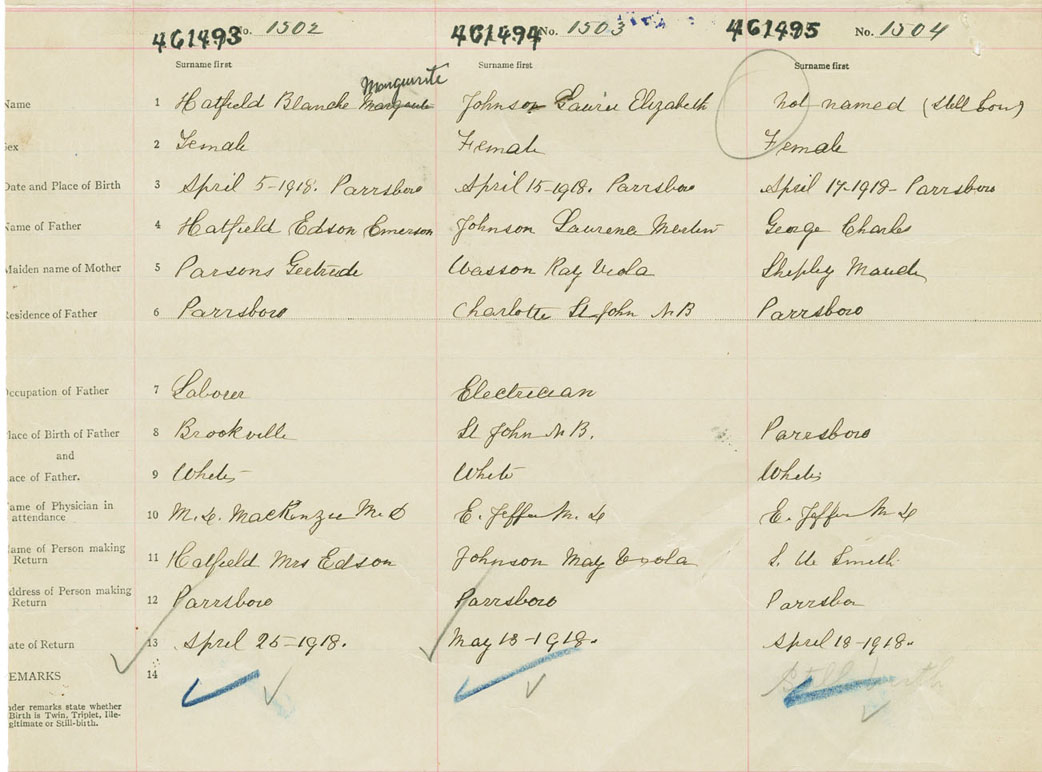 461493 No. 1502 461494 No. 1503 461495 No. 1504
Surname first Surname first Surname first
Marguerite
Name 1 Hatfield Blanche Johnson Elizabeth not named (Still born)
ex 2 Female Female Female
Date and Place of Birth 3 April 5-1918. Parrsboro April 15-1918. Parrsboro April 17-1918- Parrsboro
Name of Father 4 Hatfield Edson Emerson Johnson Laurence Merlin George Charles
Maiden name of Mother 5 Parsons Gertrude Wasson Ray Viola Shipley Maude
Residence of Father 6 Parrsboro Charlotte St John N B Parrsboro
ccupation of Father 7 Laborer Electrician
lace of Birth of Father 8 Brookville St John N B. Parrsboro
and
ace of Father. 9 White White White
ame of Physician in
attendance 10 M. D. MacKenzie M. D E. Jeffers M. D E. Jeffers M D
ame of Person making
Return 11 Hatfield Mrs Edson Johnson May Smith
ddress of Person making
Return 12 Parrsboro Parrsboro Parrsboro
ate of Return 13 April 25-1918. May 13-1918. April 18-1918.
EMARKS 14 Still birth
nder remarks state whether
Birth is Twin, Triplet, Ille-
gitimate or Still-birth.